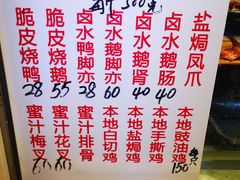 盐焗凤爪
卤水鹅肠 40
卤水鹅肾 40
卤水鹅脚亦 60
卤水鸭脚亦 28
脆皮烧鹅 55
脆皮烧鸭 28
本地豉油鸡 150
本地手撕鸡
本地盐焗鸡
本地白切鸡
蜜汁排骨
蜜汁花叉 60
蜜汁梅叉 60